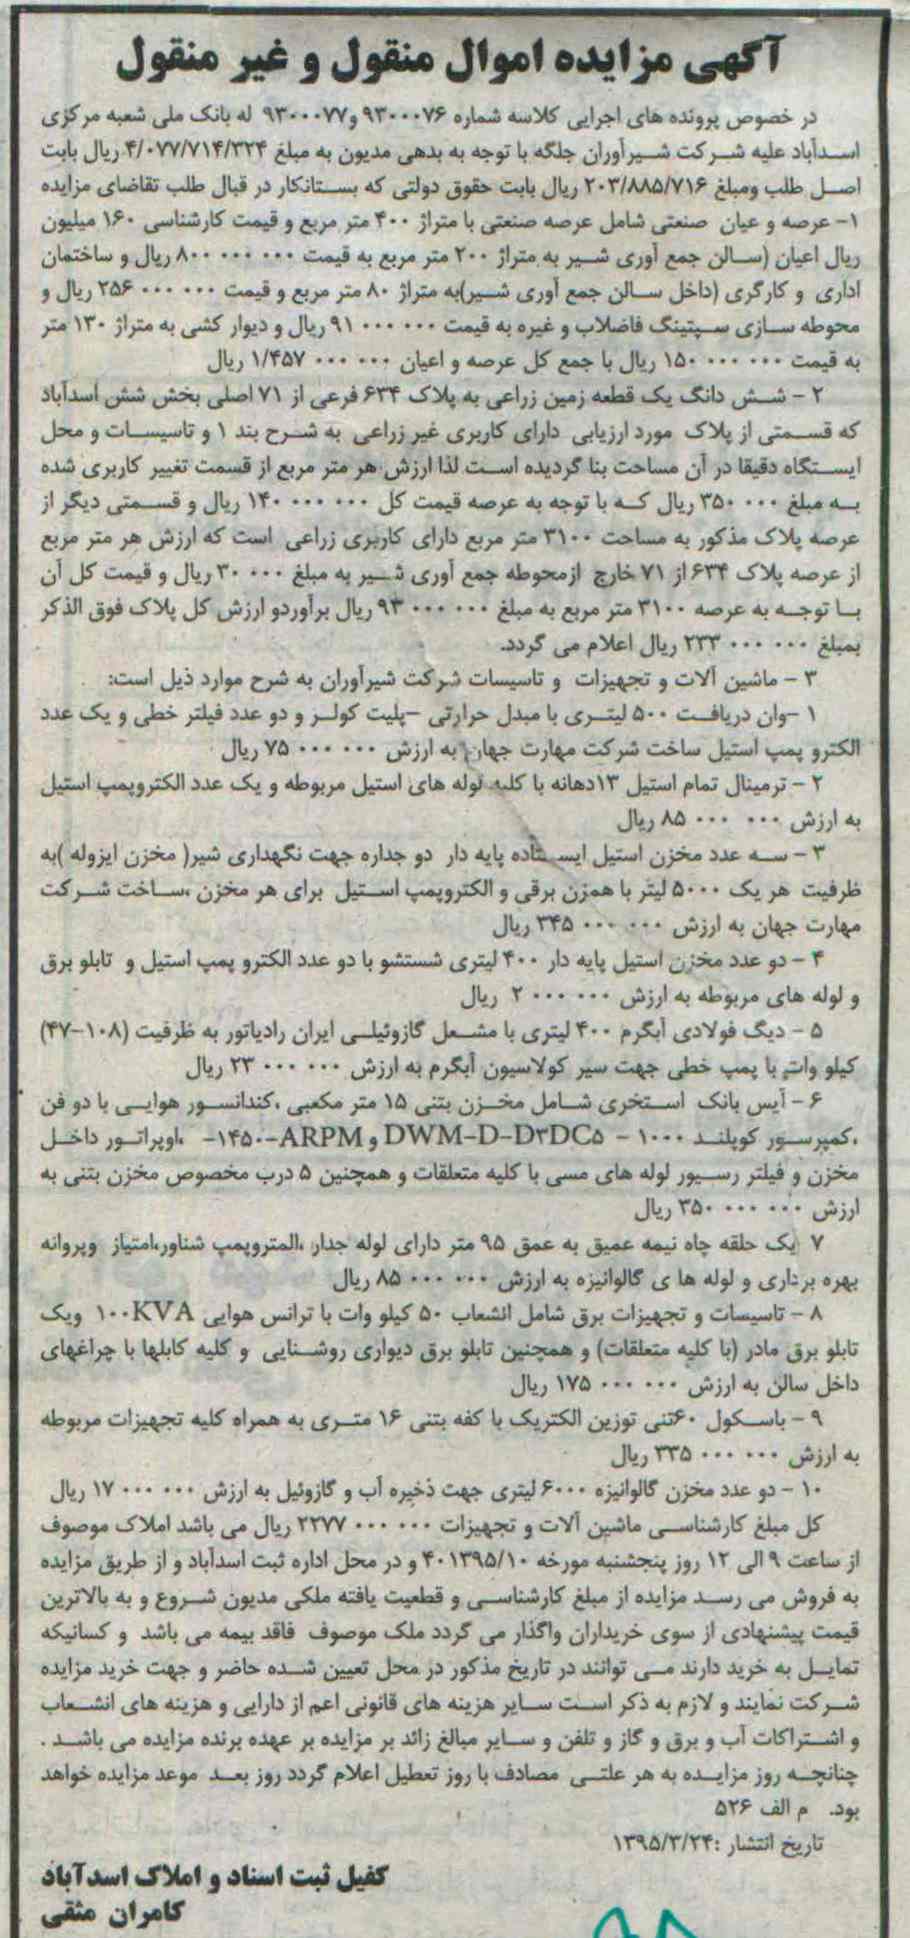 آگهی مزایده اموال منقول و غیر منقول
در خصوص پرونده های اجرایی کلاسه شماره ۹۳۰۰۰۷۶ و۹۳۰۰۰۷۷ له بانک ملی شعبه مرکزی
اسدآباد علیه شرکت شیرآوران جلگه با توجه به بدهی مدیون به مبلغ ۴/۰۷۷/۷۱۴/۳۲۴ ریال بابت
اصل طلب ومبلغ ۲۰۳/۸۸۵/۷۱۶ ریال بابت حقوق دولتی که بستانکار در قبال طلب تقاضای مزایده
۱- عرصه و عیان صنعتی شامل عرصه صنعتی با متراژ ۴۰۰ متر مربع و قیمت کارشناسی ۱۶۰ میلیون
ریال اعیان (سالن جمع آوری شیر به متراژ ۲۰۰ متر مربع به قیمت ۰۰۰ ۰۰۰ ۸۰۰ ریال و ساختمان
اداری و کارگری (داخل سالن جمع آوری شیر)به متراژ ۸۰ متر مربع و قیمت ۰۰۰ ۰۰۰ ۲۵۶ ریال و
محوطه سازی سپتینگ فاضلاب و غیره به قیمت ۰۰۰ ۰۰۰ ۹۱ ریال و دیوار کشی به متراژ ۱۳۰ متر
به قیمت ۰۰۰ ۰۰۰ ۱۵۰ ریال با جمع کل عرصه و اعیان ۰۰۰ ۰۰۰ ۱/۴۵۷ ریال
۲ - شش دانگ یک قطعه زمین زراعی به پلاک ۶۳۴ فرعی از ۷۱ اصلی بخش شش اسدآباد
که قسمتی از پلاک مورد ارزیابی دارای کاربری غیر زراعی به شرح بند ۱ و تاسیسات و محل
ایستگاه دقیقا در آن مساحت بنا گردیده است لذا ارزش هر متر مربع از قسمت تغییر کاربری شده
به مبلغ ۰۰۰ ۳۵۰ ریال که با توجه به عرصه قیمت کل ۰۰۰ ۰۰۰ ۱۴۰ ریال و قسمتی دیگر از
عرصه پلاک مذکور به مساحت ۳۱۰۰ متر مربع دارای کاربری زراعی است که ارزش هر متر مربع
از عرصه پلاک ۶۳۴ از ۷۱ خارج ازمحوطه جمع آوری شیر به مبلغ ۰۰۰ ۳۰ ریال و قیمت کل آن
با توجه به عرصه ۳۱۰۰ متر مربع به مبلغ ۰۰۰ ۰۰۰ ۹۳ ریال برآوردو ارزش کل پلاک فوق الذکر
بمبلغ ۰۰۰ ۰۰۰ ۲۳۳ ریال اعلام می گردد.
۳ - ماشین آلات و تجهیزات و تاسیسات شرکت شیرآوران به شرح موارد ذیل است:
۱ -وان دریافت ۵۰۰ لیتری با مبدل حرارتی -پلیت کولر و دو عدد فیلتر خطی و یک عدد
الکترو پمپ استیل ساخت شرکت مهارت جهان به ارزش ۰۰۰ ۰۰۰ ۷۵ ریال
۲ - ترمینال تمام استیل ۱۳دهانه با کلیه لوله های استیل مربوطه و یک عدد الکتروپمپ استیل
به ارزش ۰۰۰ ۰۰۰ ۸۵ ریال
۳ - سه عدد مخزن استیل ایستاده پایه دار دو جداره جهت نگهداری شیر( مخزن ایزوله )به
ظرفیت هر یک ۵۰۰۰ لیتر با همزن برقی و الکتروپمپ استیل برای هر مخزن ،ساخت شرکت
مهارت جهان به ارزش ۰۰۰ ۰۰۰ ۳۴۵ ریال
۴ - دو عدد مخزن استیل پایه دار ۴۰۰ لیتری شستشو با دو عدد الکترو پمپ استیل و تابلو برق
و لوله های مربوطه به ارزش ۰۰۰ ۰۰۰ ۲ ریال
۵ - دیگ فولادی آبگرم ۴۰۰ لیتری با مشعل گازوئیلی ایران رادیاتور به ظرفیت (۱۰۸-۴۷)
کیلو وات با پمپ خطی جهت سیر کولاسیون آبگرم به ارزش ۰۰۰ ۰۰۰ ۲۳ ریال
۶ - آیس بانک استخری شامل مخزن بتنی ۱۵ متر مکعبی ،کندانسور هوایی با دو فن
،کمپرسور کوپلند ۱۰۰۰ - DWM-D-D۳DC۵ و ۱۴۵۰-ARPM- ،اوپراتور داخل
مخزن و فیلتر رسیور لوله های مسی با کلیه متعلقات و همچنین ۵ درب مخصوص مخزن بتنی به
ارزش ۰۰۰ ۰۰۰ ۳۵۰ ریال
۷ یک حلقه چاه نیمه عمیق به عمق ۹۵ متر دارای لوله جدار ،المتروپمپ شناور،امتیاز وپروانه
بهره برداری و لوله ها ی گالوانیزه به ارزش ۰۰۰ ۰۰۰ ۸۵ ریال
۸ - تاسیسات و تجهیزات برق شامل انشعاب ۵۰ کیلو وات با ترانس هوایی ۱۰۰KVA ویک
تابلو برق مادر (با کلیه متعلقات) و همچنین تابلو برق دیواری روشنایی و کلیه کابلها با چراغهای
داخل سالن به ارزش ۰۰۰ ۰۰۰ ۱۷۵ ریال
۹ - باسکول ۶۰تنی توزین الکتریک با کفه بتنی ۱۶ متری به همراه کلیه تجهیزات مربوطه
به ارزش ۰۰۰ ۰۰۰ ۳۳۵ ریال
۱۰ - دو عدد مخزن گالوانیزه ۶۰۰۰ لیتری جهت ذخیره آب و گازوئیل به ارزش ۰۰۰ ۰۰۰ ۱۷ ریال
کل مبلغ کارشناسی ماشین آلات و تجهیزات ۰۰۰ ۰۰۰ ۲۲۷۷ ریال می باشد املاک موصوف
از ساعت ۹ الی ۱۲ روز پنجشنبه مورخه ۴۰۱۳۹۵/۱۰ و در محل اداره ثبت اسدآباد و از طریق مزایده
به فروش می رسد مزایده از مبلغ کارشناسی و قطعیت یافته ملکی مدیون شروع و به بالاترین
قیمت پیشنهادی از سوی خریداران واگذار می گردد ملک موصوف فاقد بیمه می باشد و کسانیکه
تمایل به خرید دارند می توانند در تاریخ مذکور در محل تعیین شده حاضر و جهت خرید مزایده
شرکت نمایند و لازم به ذکر است سایر هزینه های قانونی اعم از دارایی و هزینه های انشعاب
و اشتراکات آب و برق و گاز و تلفن و سایر مبالغ زائد بر مزایده بر عهده برنده مزایده می باشد .
چنانچه روز مزایده به هر علتی مصادف با روز تعطیل اعلام گردد روز بعد موعد مزایده خواهد
بود. م الف ۵۲۶
تاریخ انتشار :۱۳۹۵/۳/۲۴
کفیل ثبت اسناد و املاک اسدآباد
کامران مثقی